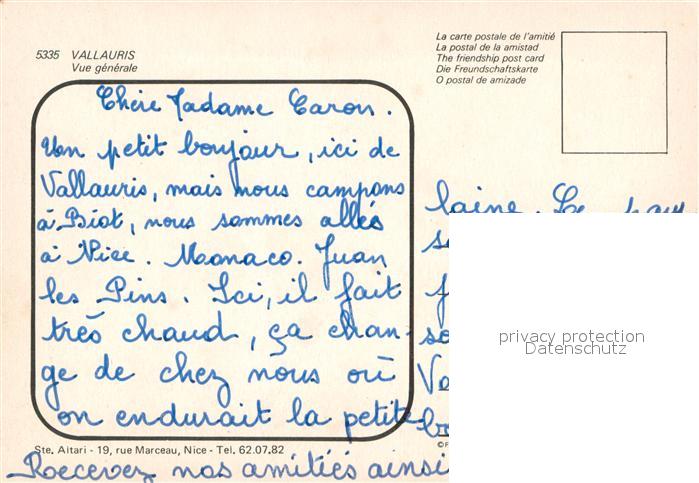 La carte postale de l'amitié
La postal de la amistad
The friendship post card
Die Freundschaftskarte
O postal de amizade
5335 VALLAURIS
Vue générale
Chère Madame Caron.
Un petit bonjour, ici de
Vallauris, mais nous campons
à Biot, nous sommes allés
à Nice. Monaco. Juan
les Pins. Ici, il fait
très chaud, ça chan-
ge de chez nous où
on endurait la petite
laine. Le
Ste. Altari - 19, rue Marceau, Nice - Tel. 62.07.82
Recevez nos amitiés ainsi
privacy protection
Datenschutz